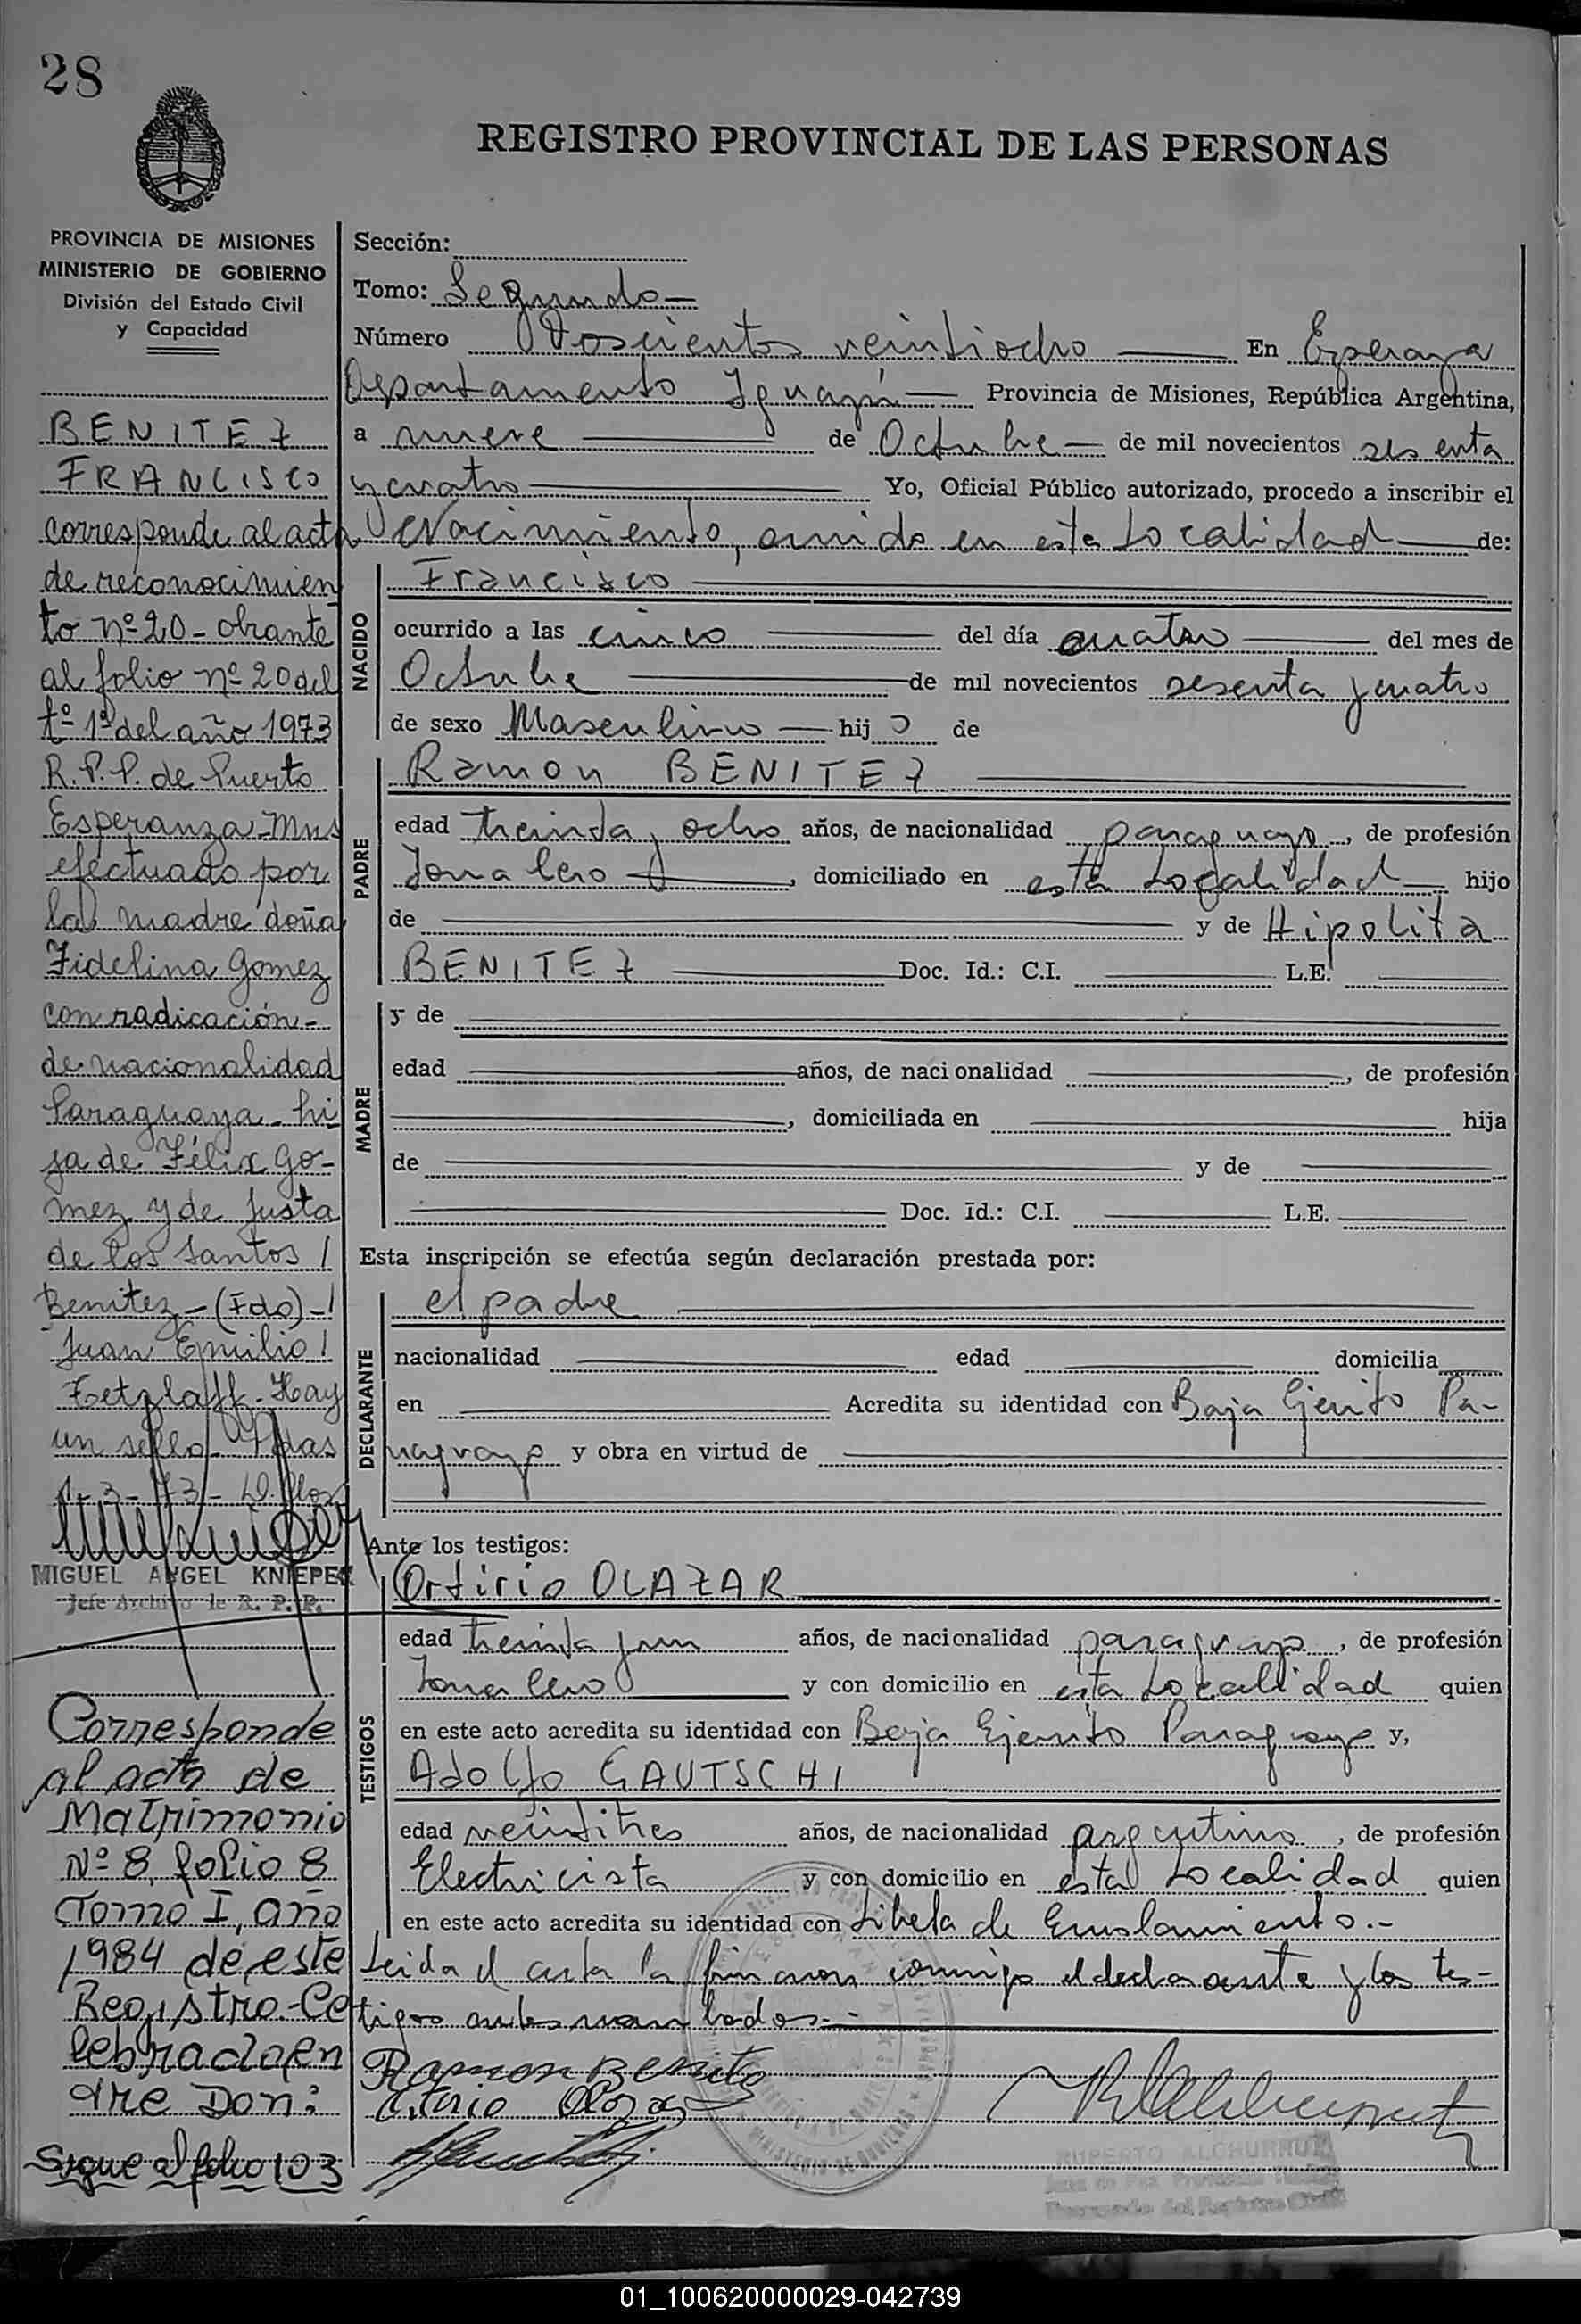 28
REGISTRO PROVINCIAL DE LAS PERSONAS
PROVINCIA DE MISIONES
MINISTERIO DE GOBIERNO
División del Estado Civil
y Capacidad
BENITEZ
FRANCISCO
corresponde al acta
de reconocimien
to nº 20 - obrante
al folio nº 20 del
tº 1º del año 1973
R.P.P. de Puerto
Esperanza Mnes
efectuado por
la madre doña
Fidelina Gomez
con radicación -
de nacionalidad
Paraguaya - hi
ja de Félix Go-
mez y de Justa
de los Santos
Benitez - (Fdo) -
Juan Emilio
Zetzlaff - Hay
un sello - Pdas
1-3-73 -
MIGUEL ANGEL KNIEPER
Jefe Archivo de R. P. P.
Corresponde
al acta de
Matrimonio
Nº 8, folio 8
Tomo I, año
1984 de este
Registro - Ce
lebrado en
tre Don:
Sigue al folio 103
Sección:
Tomo: Segundo -
Número Doscientos veintiocho En Esperanza
Departamento Iguazú Provincia de Misiones, República Argentina,
a nueve de Octubre de mil novecientos sesenta
y cuatro Yo, Oficial Público autorizado, procedo a inscribir el
Nacimiento, ocurrido en esta Localidad de:
NACIDO
Francisco
ocurrido a las cinco del día cuatro del mes de
Octubre de mil novecientos sesenta y cuatro
de sexo Masculino hij o de
PADRE
Ramon BENITEZ
edad treinta y ocho años, de nacionalidad paraguayo, de profesión
Jornalero, domiciliado en esta Localidad hijo
de y de Hipolita
BENITEZ Doc. Id.: C.I. L.E.
MADRE
y de
edad años, de nacionalidad , de profesión
, domiciliada en hija
de y de
Doc. Id.: C.I. L.E.
Esta inscripción se efectúa según declaración prestada por:
DECLARANTE
el padre
nacionalidad edad domicilia
en Acredita su identidad con Baja Ejerito Pa-
raguayo y obra en virtud de
Ante los testigos:
TESTIGOS
Porfirio OLAZAR
edad treinta y un años, de nacionalidad paraguayo, de profesión
Jornalero y con domicilio en esta Localidad quien
en este acto acredita su identidad con Baja Ejerito Paraguayo y,
Adolfo GAUTSCHI
edad veintitres años, de nacionalidad argentino, de profesión
Electricista y con domicilio en esta Localidad quien
en este acto acredita su identidad con Libreta de Enrolamiento.-
Leida el acta la firmaron conmigo el declarante y los tes-
tigos antes nombrados.-
Ramon Benitez
Olazar
RUPERTO ALCHURRUT
Juez de Paz
Encargado del Registro Civil
01_100620000029-042739